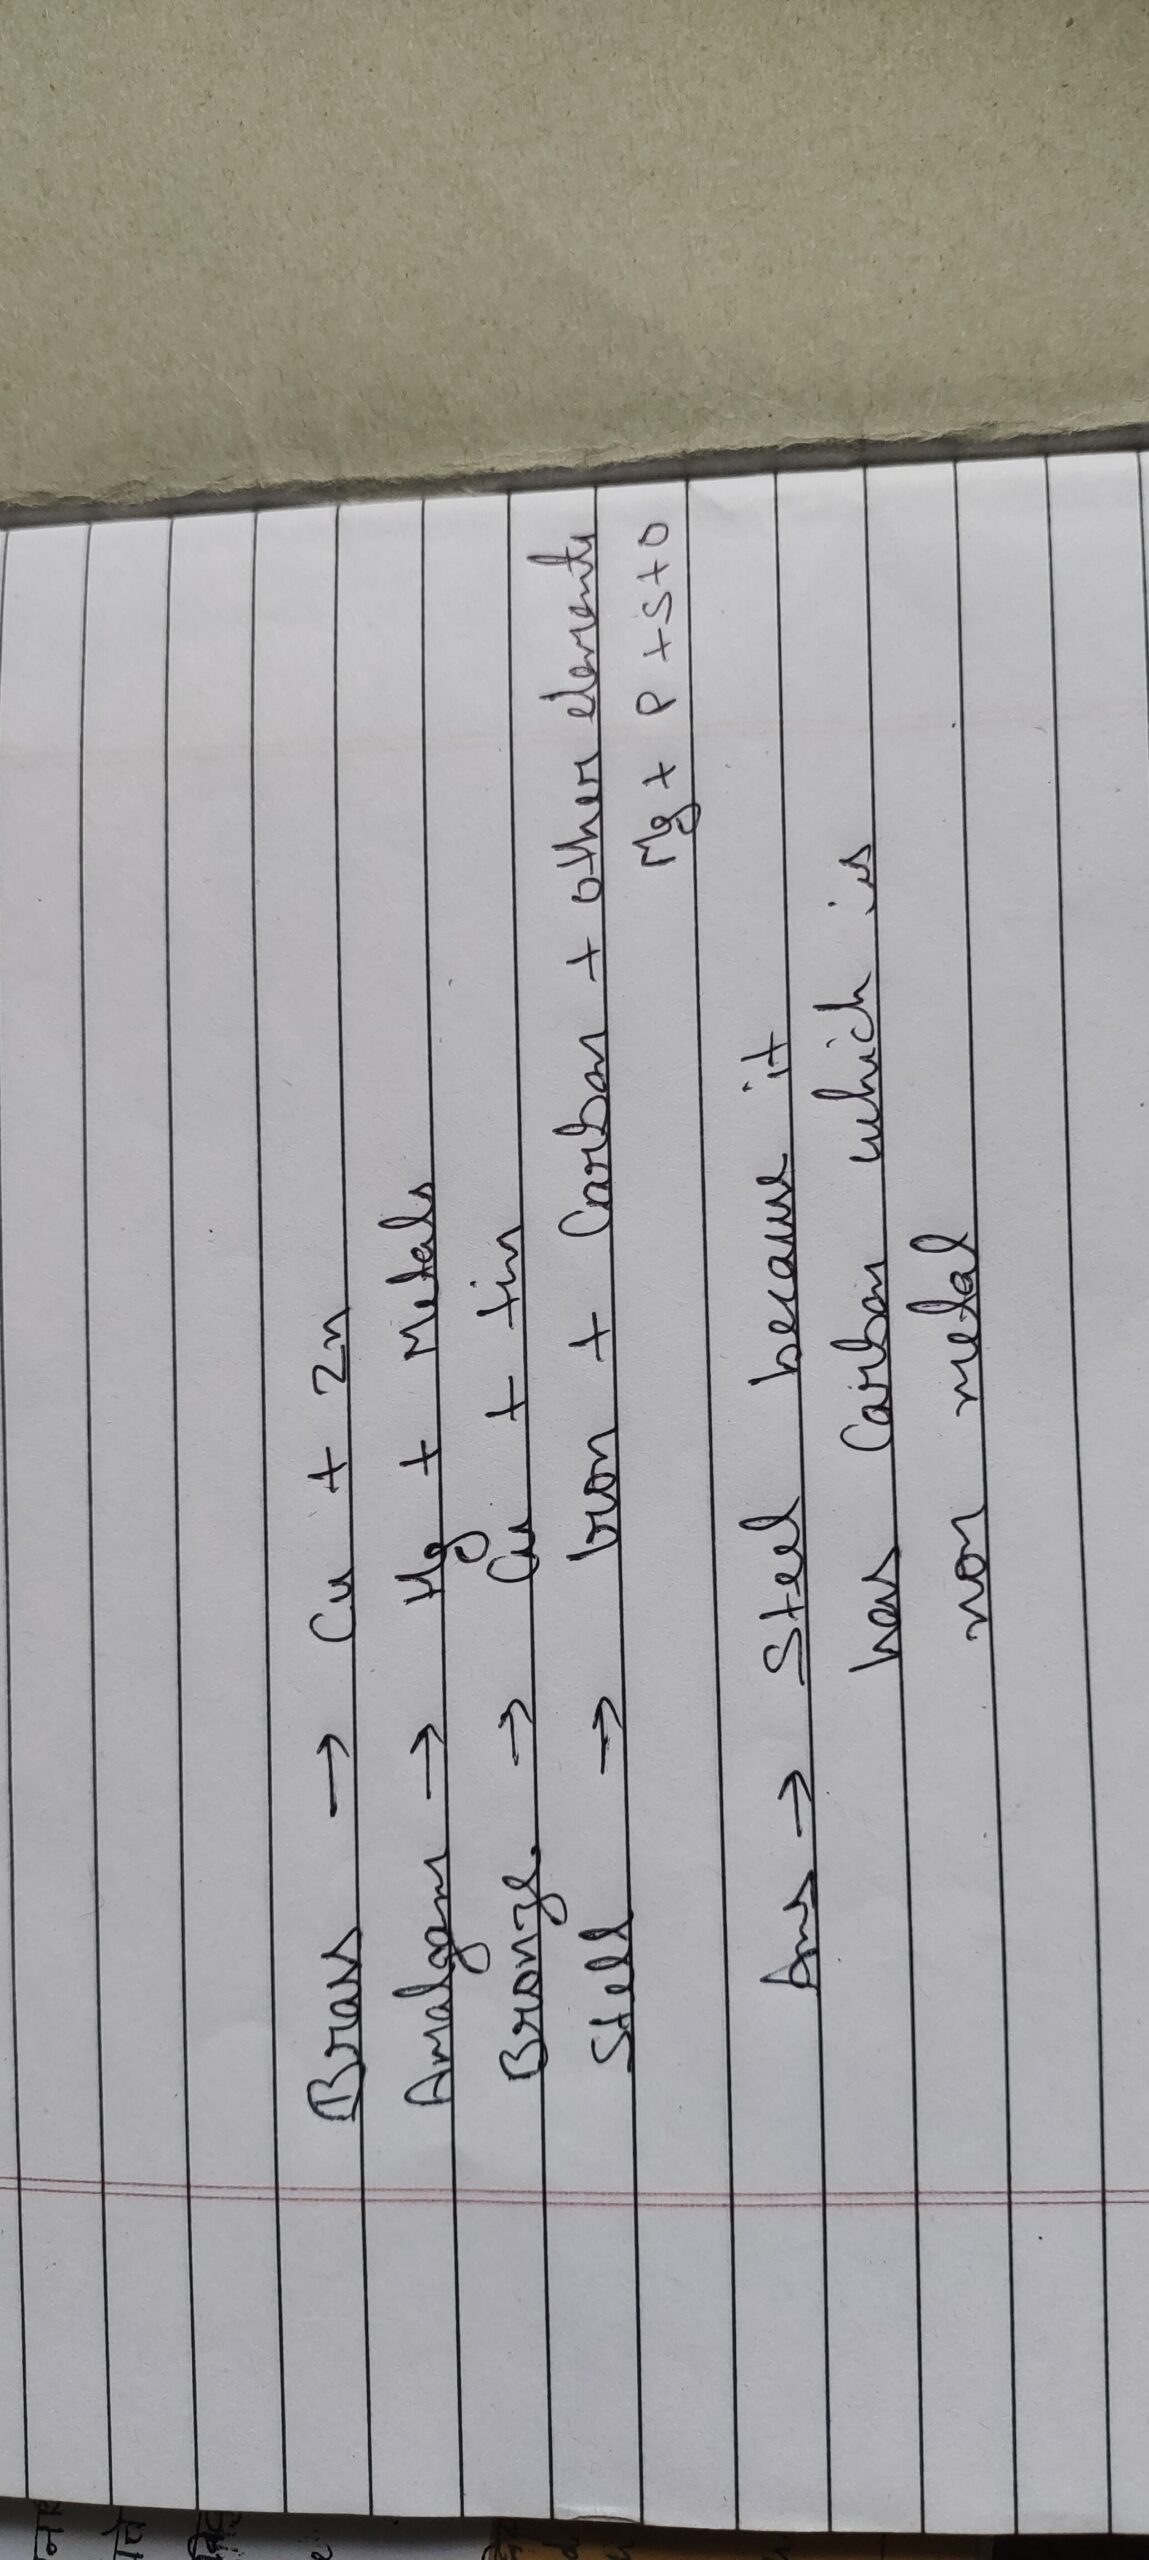 Brass → Cu + Zn
Amalgam → Hg + Metals
Bronze. → Cu + tin
Steel → Iron + Carbon + other elements
Mg + P + S + O
Ans → Steel because it
has Carbon which is
non metal